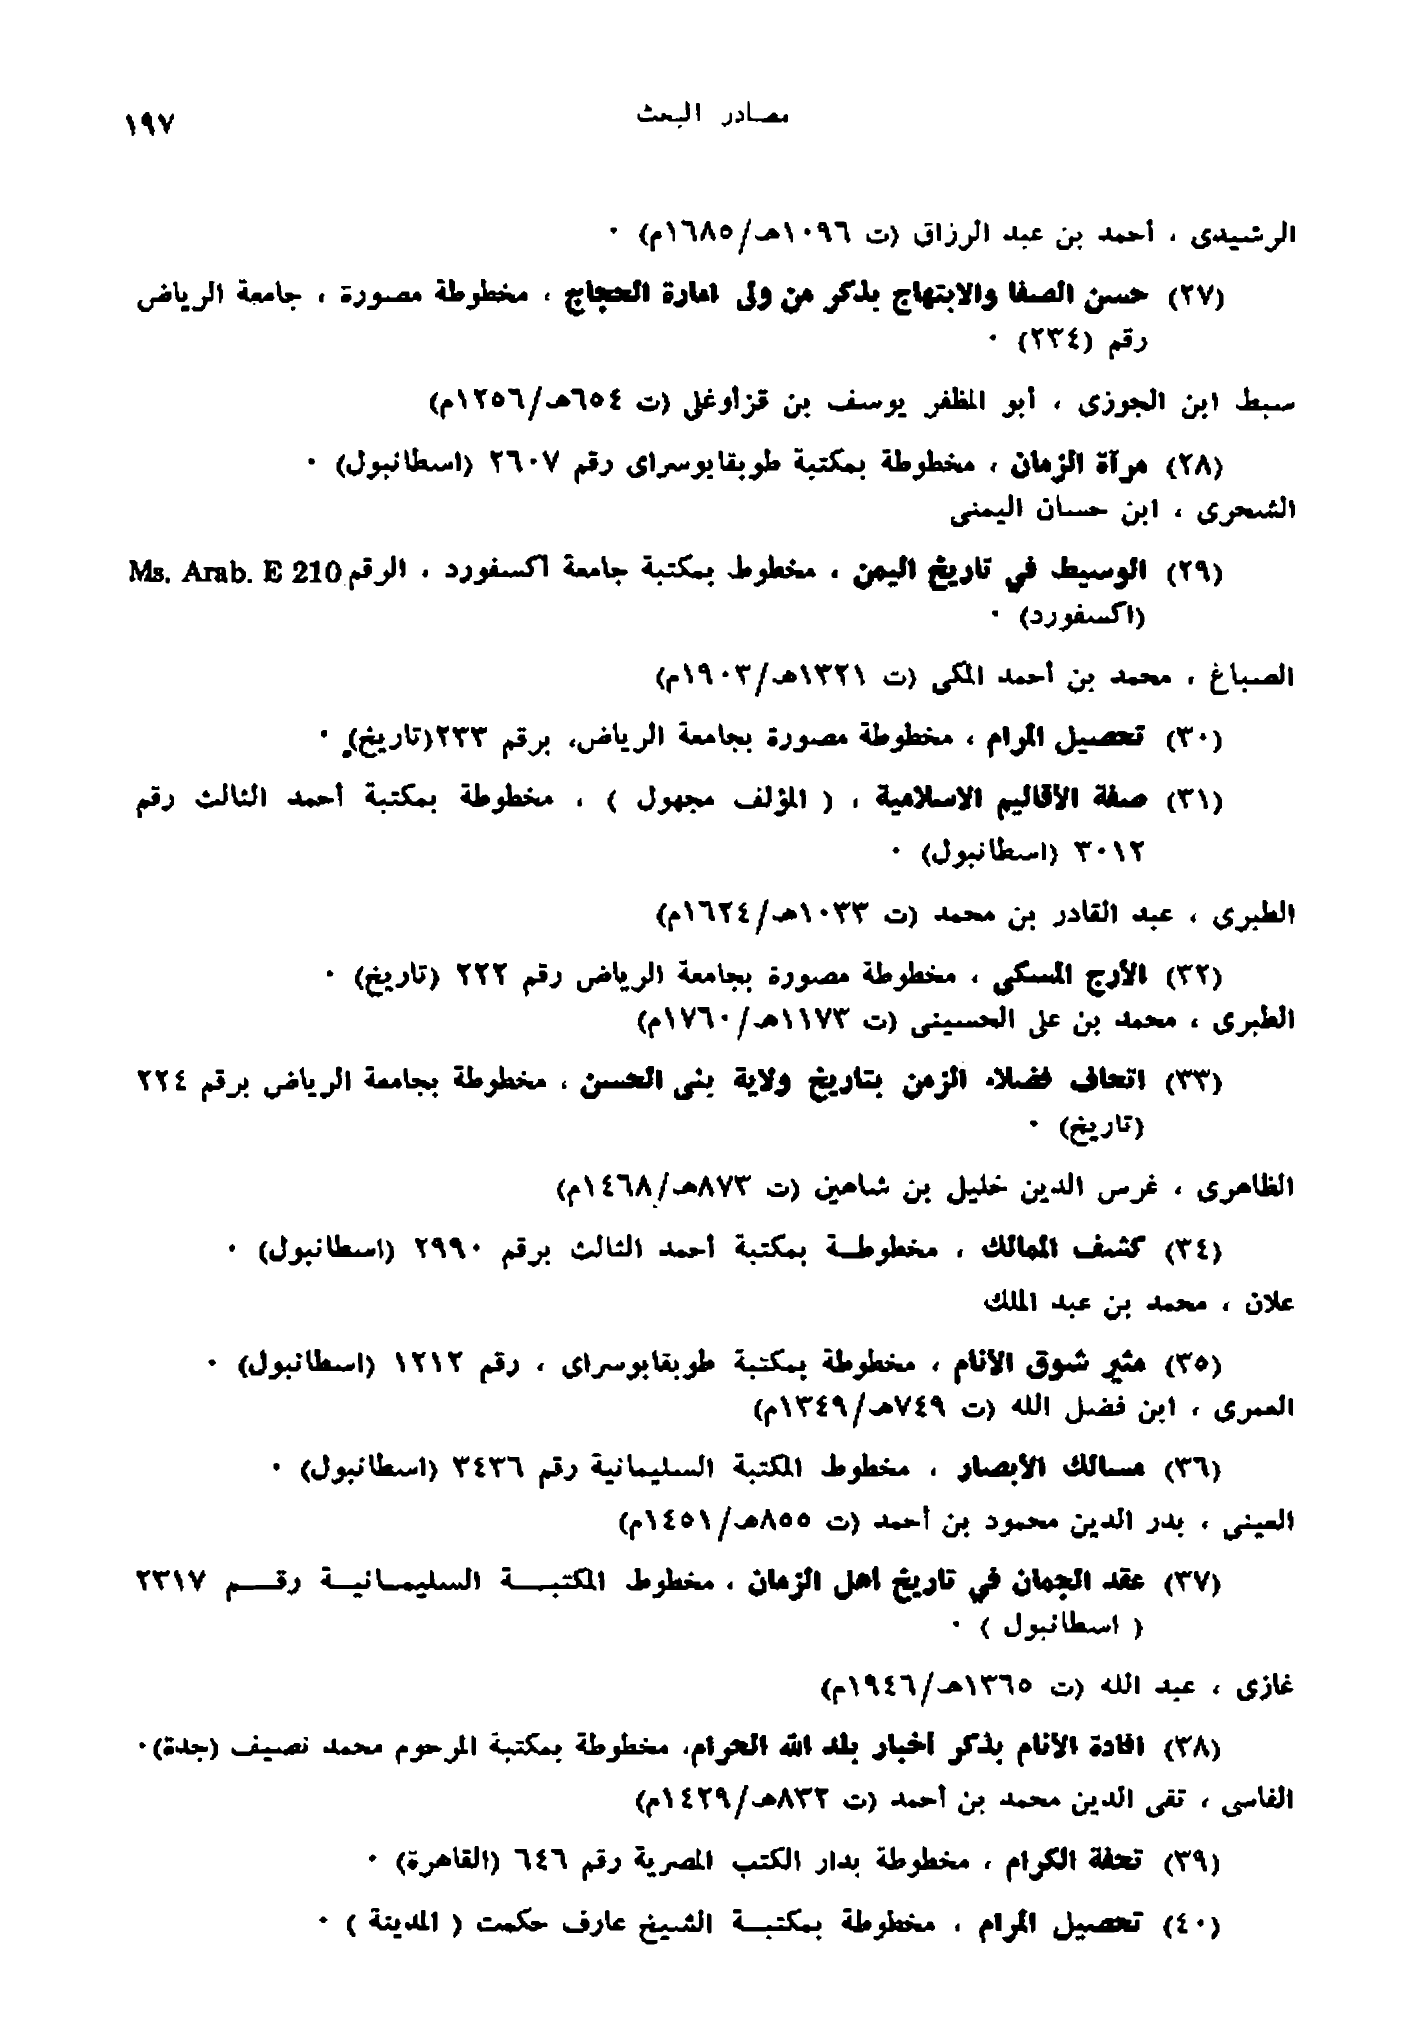 مصادر البحث
١٩٧
الرشيدى ، أحمد بن عبد الرزاق (ت ١٠٩٦هـ/١٦٨٥م) ·
(٢٧) حسن الصفا والابتهاج بذكر من ولى امارة الحجاج ، مخطوطة مصورة ، جامعة الرياض
رقم (٢٣٤) ·
سبط ابن الجوزى ، أبو المظفر يوسف بن قزأوغلي (ت ٦٥٤هـ/١٢٥٦م)
(٢٨) مرآة الزمان ، مخطوطة بمكتبة طوبقابوسراى رقم ٢٦٠٧ (اسطانبول) ·
الشحرى ، ابن حسان اليمنى
(٢٩) الوسيط في تاريخ اليمن ، مخطوط بمكتبة جامعة اكسفورد ، الرقم Ms. Arab. E 210
(اكسفورد) ·
الصباغ ، محمد بن أحمد المكى (ت ١٣٢١هـ/١٩٠٣م)
(٣٠) تحصيل المرام ، مخطوطة مصورة بجامعة الرياض، برقم ٢٣٣(تاريخ) ·
(٣١) صفة الأقاليم الاسلامية ، ( المؤلف مجهول ) ، مخطوطة بمكتبة أحمد الثالث رقم
٣٠١٢ (اسطانبول) ·
الطبرى ، عبد القادر بن محمد (ت ١٠٣٣هـ/١٦٢٤م)
(٣٢) الأرج المسكى ، مخطوطة مصورة بجامعة الرياض رقم ٢٢٢ (تاريخ) ·
الطبرى ، محمد بن على الحسينى (ت ١١٧٣هـ/١٧٦٠م)
(٣٣) اتحاف فضلاء الزمن بتاريخ ولاية بنى الحسن ، مخطوطة بجامعة الرياض برقم ٢٢٤
(تاريخ) ·
الظاهرى ، غرس الدين خليل بن شاهين (ت ٨٧٣هـ/١٤٦٨م)
(٣٤) كشف الممالك ، مخطوطة بمكتبة أحمد الثالث برقم ٢٩٩٠ (اسطانبول) ·
علان ، محمد بن عبد الملك
(٣٥) مثير شوق الأنام ، مخطوطة بمكتبة طوبقابوسراى ، رقم ١٢١٢ (اسطانبول) ·
العمرى ، ابن فضل الله (ت ٧٤٩هـ/١٣٤٩م)
(٣٦) مسالك الأبصار ، مخطوط المكتبة السليمانية رقم ٣٤٣٦ (اسطانبول) ·
العينى ، بدر الدين محمود بن أحمد (ت ٨٥٥هـ/١٤٥١م)
(٣٧) عقد الجمان في تاريخ أهل الزمان ، مخطوط المكتبة السليمانية رقم ٢٣١٧
( اسطانبول ) ·
غازى ، عبد الله (ت ١٣٦٥هـ/١٩٤٦م)
(٣٨) افادة الأنام بذكر أخبار بلد الله الحرام، مخطوطة بمكتبة المرحوم محمد نصيف (جدة)·
الفاسى ، تقى الدين محمد بن أحمد (ت ٨٣٢هـ/١٤٢٩م)
(٣٩) تحفة الكرام ، مخطوطة بدار الكتب المصرية رقم ٦٤٦ (القاهرة) ·
(٤٠) تحصيل المرام ، مخطوطة بمكتبة الشيخ عارف حكمت ( المدينة ) ·